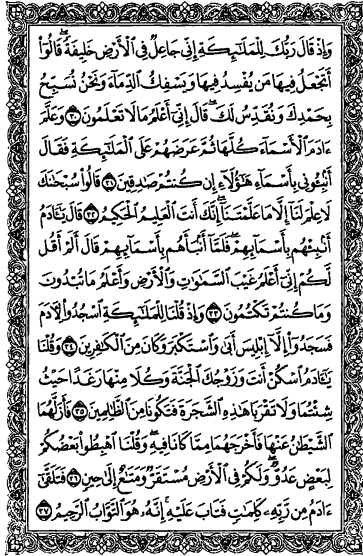 وَإِذْ قَالَ رَبُّكَ لِلْمَلَٰٓئِكَةِ إِنِّى جَاعِلٌ فِى ٱلْأَرْضِ خَلِيفَةً ۖ قَالُوٓا۟
أَتَجْعَلُ فِيهَا مَن يُفْسِدُ فِيهَا وَيَسْفِكُ ٱلدِّمَآءَ وَنَحْنُ نُسَبِّحُ
بِحَمْدِكَ وَنُقَدِّسُ لَكَ ۖ قَالَ إِنِّىٓ أَعْلَمُ مَا لَا تَعْلَمُونَ ٣٠ وَعَلَّمَ
ءَادَمَ ٱلْأَسْمَآءَ كُلَّهَا ثُمَّ عَرَضَهُمْ عَلَى ٱلْمَلَٰٓئِكَةِ فَقَالَ
أَنۢبِـُٔونِى بِأَسْمَآءِ هَٰٓؤُلَآءِ إِن كُنتُمْ صَٰدِقِينَ ٣١ قَالُوا۟ سُبْحَٰنَكَ
لَا عِلْمَ لَنَآ إِلَّا مَا عَلَّمْتَنَآ ۖ إِنَّكَ أَنتَ ٱلْعَلِيمُ ٱلْحَكِيمُ ٣٢ قَالَ يَٰٓـَٔادَمُ
أَنۢبِئْهُم بِأَسْمَآئِهِمْ ۖ فَلَمَّآ أَنۢبَأَهُم بِأَسْمَآئِهِمْ قَالَ أَلَمْ أَقُل
لَّكُمْ إِنِّىٓ أَعْلَمُ غَيْبَ ٱلسَّمَٰوَٰتِ وَٱلْأَرْضِ وَأَعْلَمُ مَا تُبْدُونَ
وَمَا كُنتُمْ تَكْتُمُونَ ٣٣ وَإِذْ قُلْنَا لِلْمَلَٰٓئِكَةِ ٱسْجُدُوا۟ لِـَٔادَمَ
فَسَجَدُوٓا۟ إِلَّآ إِبْلِيسَ أَبَىٰ وَٱسْتَكْبَرَ وَكَانَ مِنَ ٱلْكَٰفِرِينَ ٣٤ وَقُلْنَا
يَٰٓـَٔادَمُ ٱسْكُنْ أَنتَ وَزَوْجُكَ ٱلْجَنَّةَ وَكُلَا مِنْهَا رَغَدًا حَيْثُ
شِئْتُمَا وَلَا تَقْرَبَا هَٰذِهِ ٱلشَّجَرَةَ فَتَكُونَا مِنَ ٱلظَّٰلِمِينَ ٣٥ فَأَزَلَّهُمَا
ٱلشَّيْطَٰنُ عَنْهَا فَأَخْرَجَهُمَا مِمَّا كَانَا فِيهِ ۖ وَقُلْنَا ٱهْبِطُوا۟ بَعْضُكُمْ
لِبَعْضٍ عَدُوٌّ ۖ وَلَكُمْ فِى ٱلْأَرْضِ مُسْتَقَرٌّ وَمَتَٰعٌ إِلَىٰ حِينٍ ٣٦ فَتَلَقَّىٰٓ
ءَادَمُ مِن رَّبِّهِۦ كَلِمَٰتٍ فَتَابَ عَلَيْهِ ۚ إِنَّهُۥ هُوَ ٱلتَّوَّابُ ٱلرَّحِيمُ ٣٧